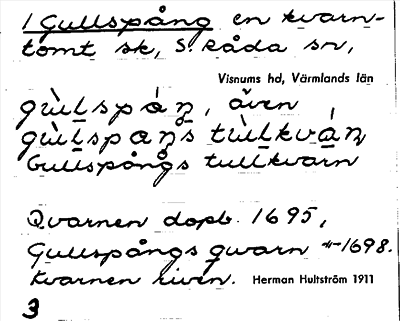 1 Gullspång en kvarn-
tomt sk, S. Råda sn,
Visnums hd, Värmlands län
gùlspáŋ, även
gùlspaŋs tùlkváɳ
Gullspångs tullkvarn
Qvarnen dopb. 1695,
Gullspångs qwarn 1698.
Kvarnen riven. Herman Hultström 1911
3